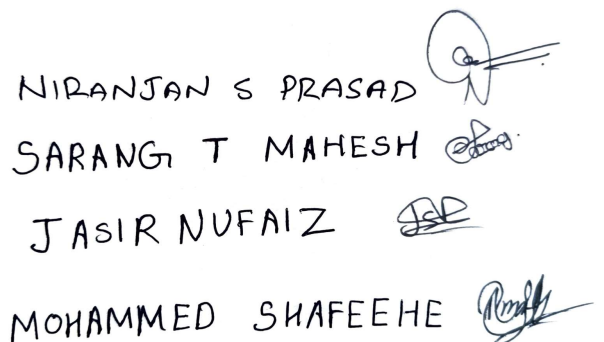 NIRANJAN S PRASAD
SARANG T MAHESH
JASIR NUFAIZ
MOHAMMED SHAFEEHE